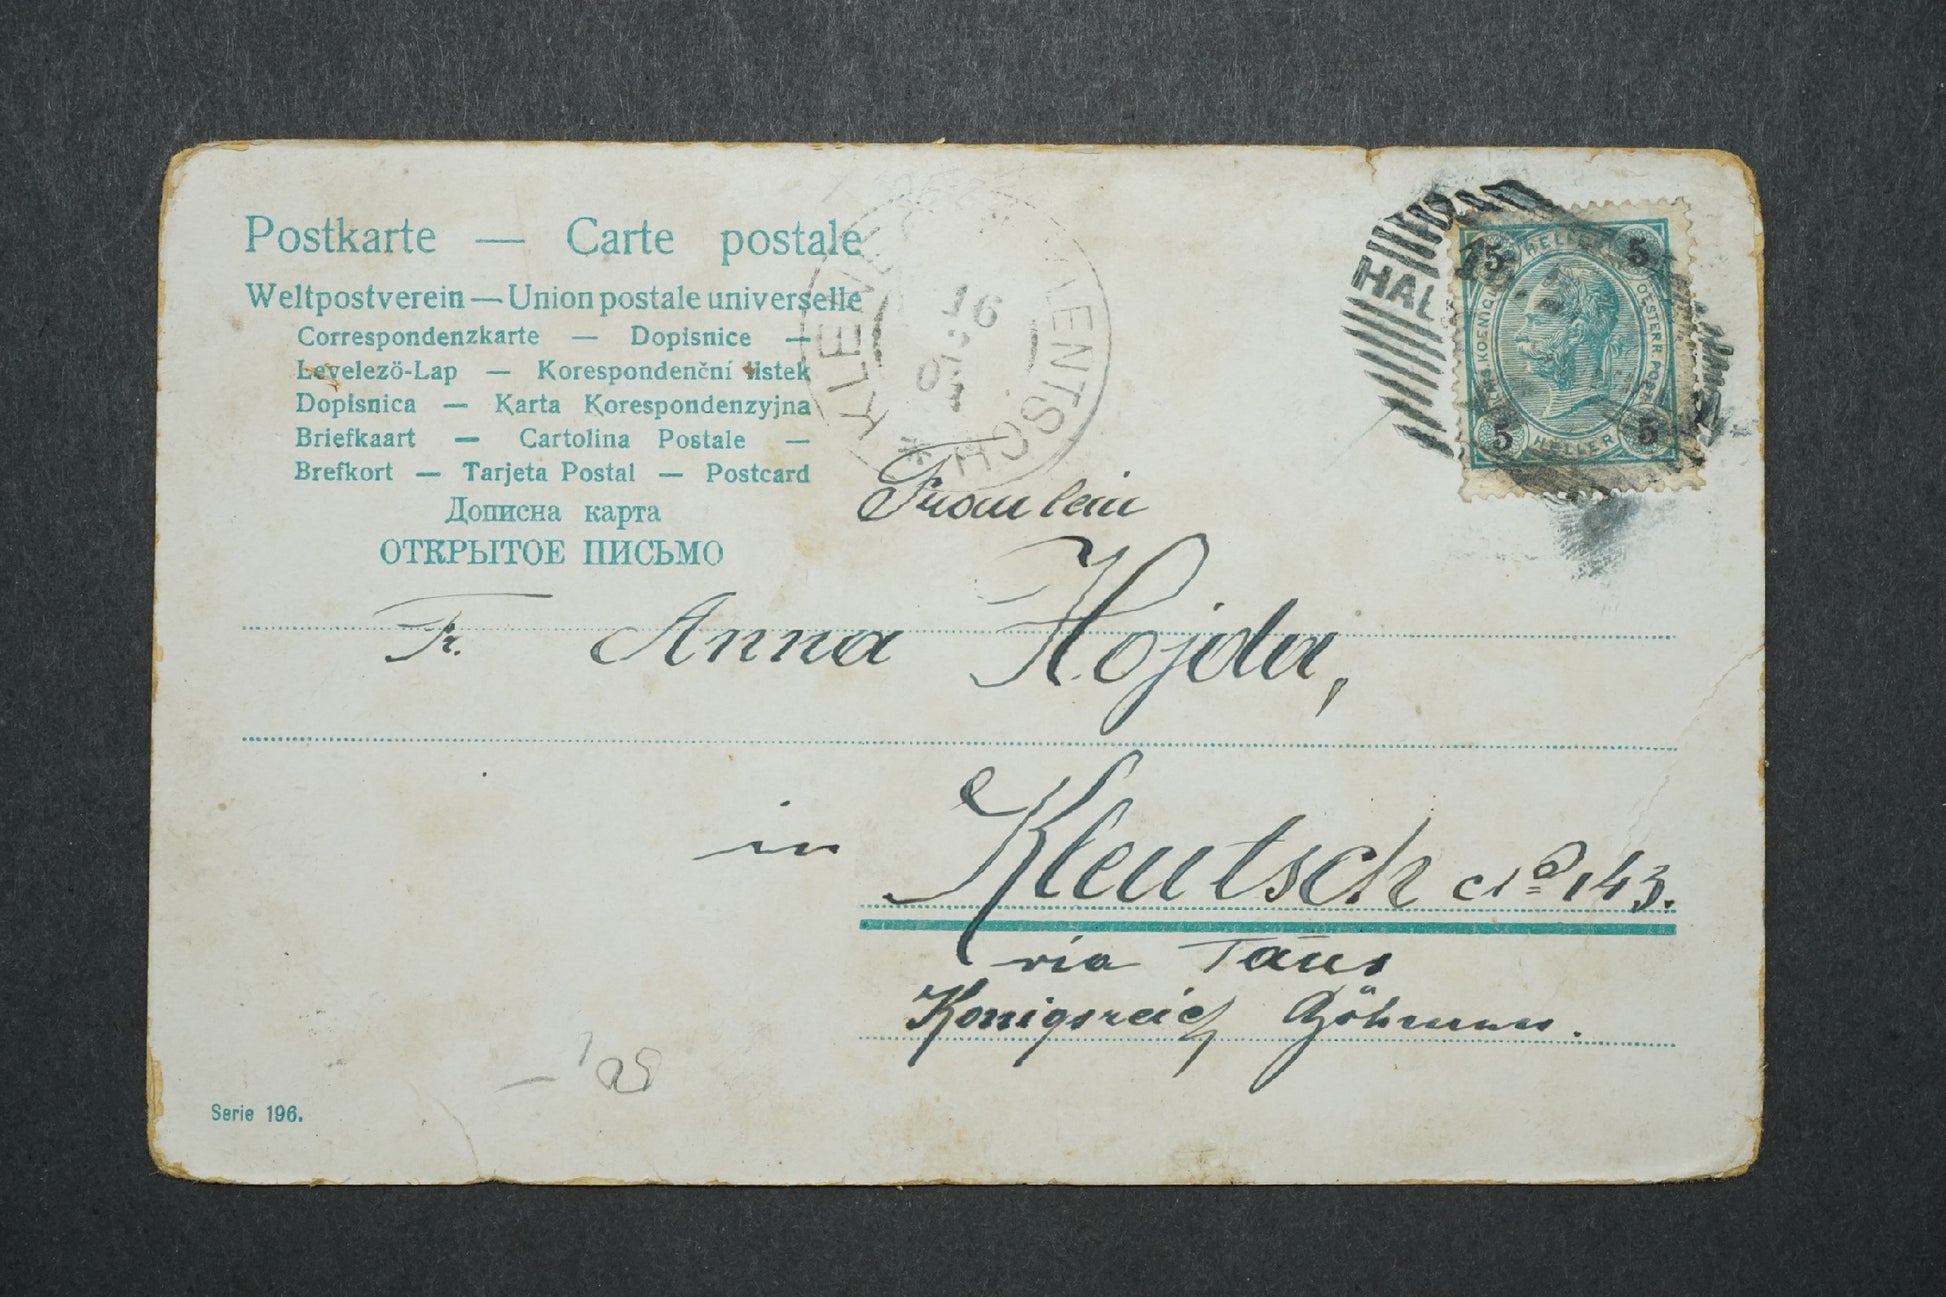 Postkarte — Carte postale
Weltpostverein — Union postale universelle
Correspondenzkarte — Dopisnice —
Levelező-Lap — Korespondenční listek
Dopisnica — Karta Korespondenzyjna
Briefkaart — Cartolina Postale —
Brefkort — Tarjeta Postal — Postcard
Дописна карта
ОТКРЫТОЕ ПИСЬМО
KLENE
ENTSCH *
16
HAL
5 HELLER 5
5 HELLER 5
KOENIGL.
OESTERR. POST
Fraulein
Fr. Anna Hojda,
in Kleutsch 143.
via Taus
Königreich Böhmen.
Serie 196.